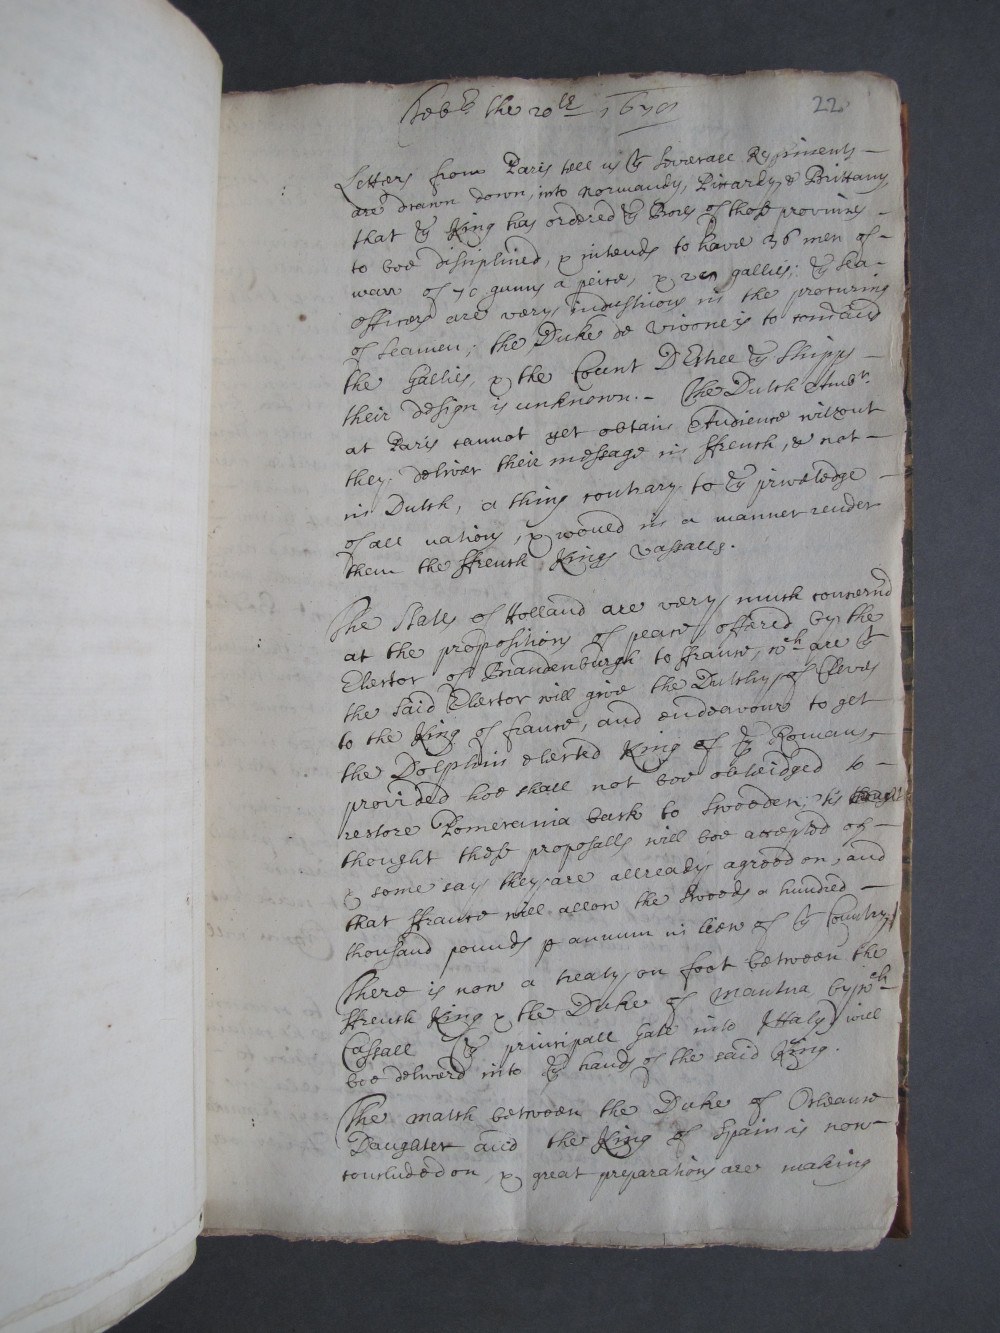 Feb: the 20th 1679
22
Letters from Paris tell us ye severall Regiments
are drawn down into Normandy, Piccardy, & Brittany,
that ye King has ordered ye Boys of those provinces
to bee disciplined, & intends to have 36 men of
warr of 70 gunns a peice, & 20 gallies; ye Sea-
officers are very industrious in the procuring
of Seamen; the Duke de Vivone is to comand
the Gallies, & the Count D'Estree ye Shipps
their design is unknown. - The Dutch Ambr.
at Paris cannot yet obtain Audience without
they deliver their message in ffrench, & not
in Dutch, a thing contrary to ye priveledge
of all nations, & would in a manner render
them the ffrench Kings vassalls.
The States of Holland are very much concernd
at the propositions of peace offered by the
Elector of Brandenburgh to ffrance, wch are yt
the said Elector will give the Dutchy of Cleves
to the King of france, and endeavour to get
the Dolphin elected King of ye Romans,
provided hee shall not bee obleidged to
restore Pomerania back to Sweeden; tis
thought these proposalls will bee accepted of
& some say they are allready agreed on, and
that ffrance will allow the Sweeds a hundred
thousand pounds p annum in lieu of ye Country.
There is now a treaty on foot between the
ffrench King & the Duke of Mantua by wch
Cassall (ye principall Gate into Ittaly) will
bee deliverd into ye hands of the said King.
The match between the Duke of Orleance
Daughter and the King of Spain is now
concluded on, & great preparations are making